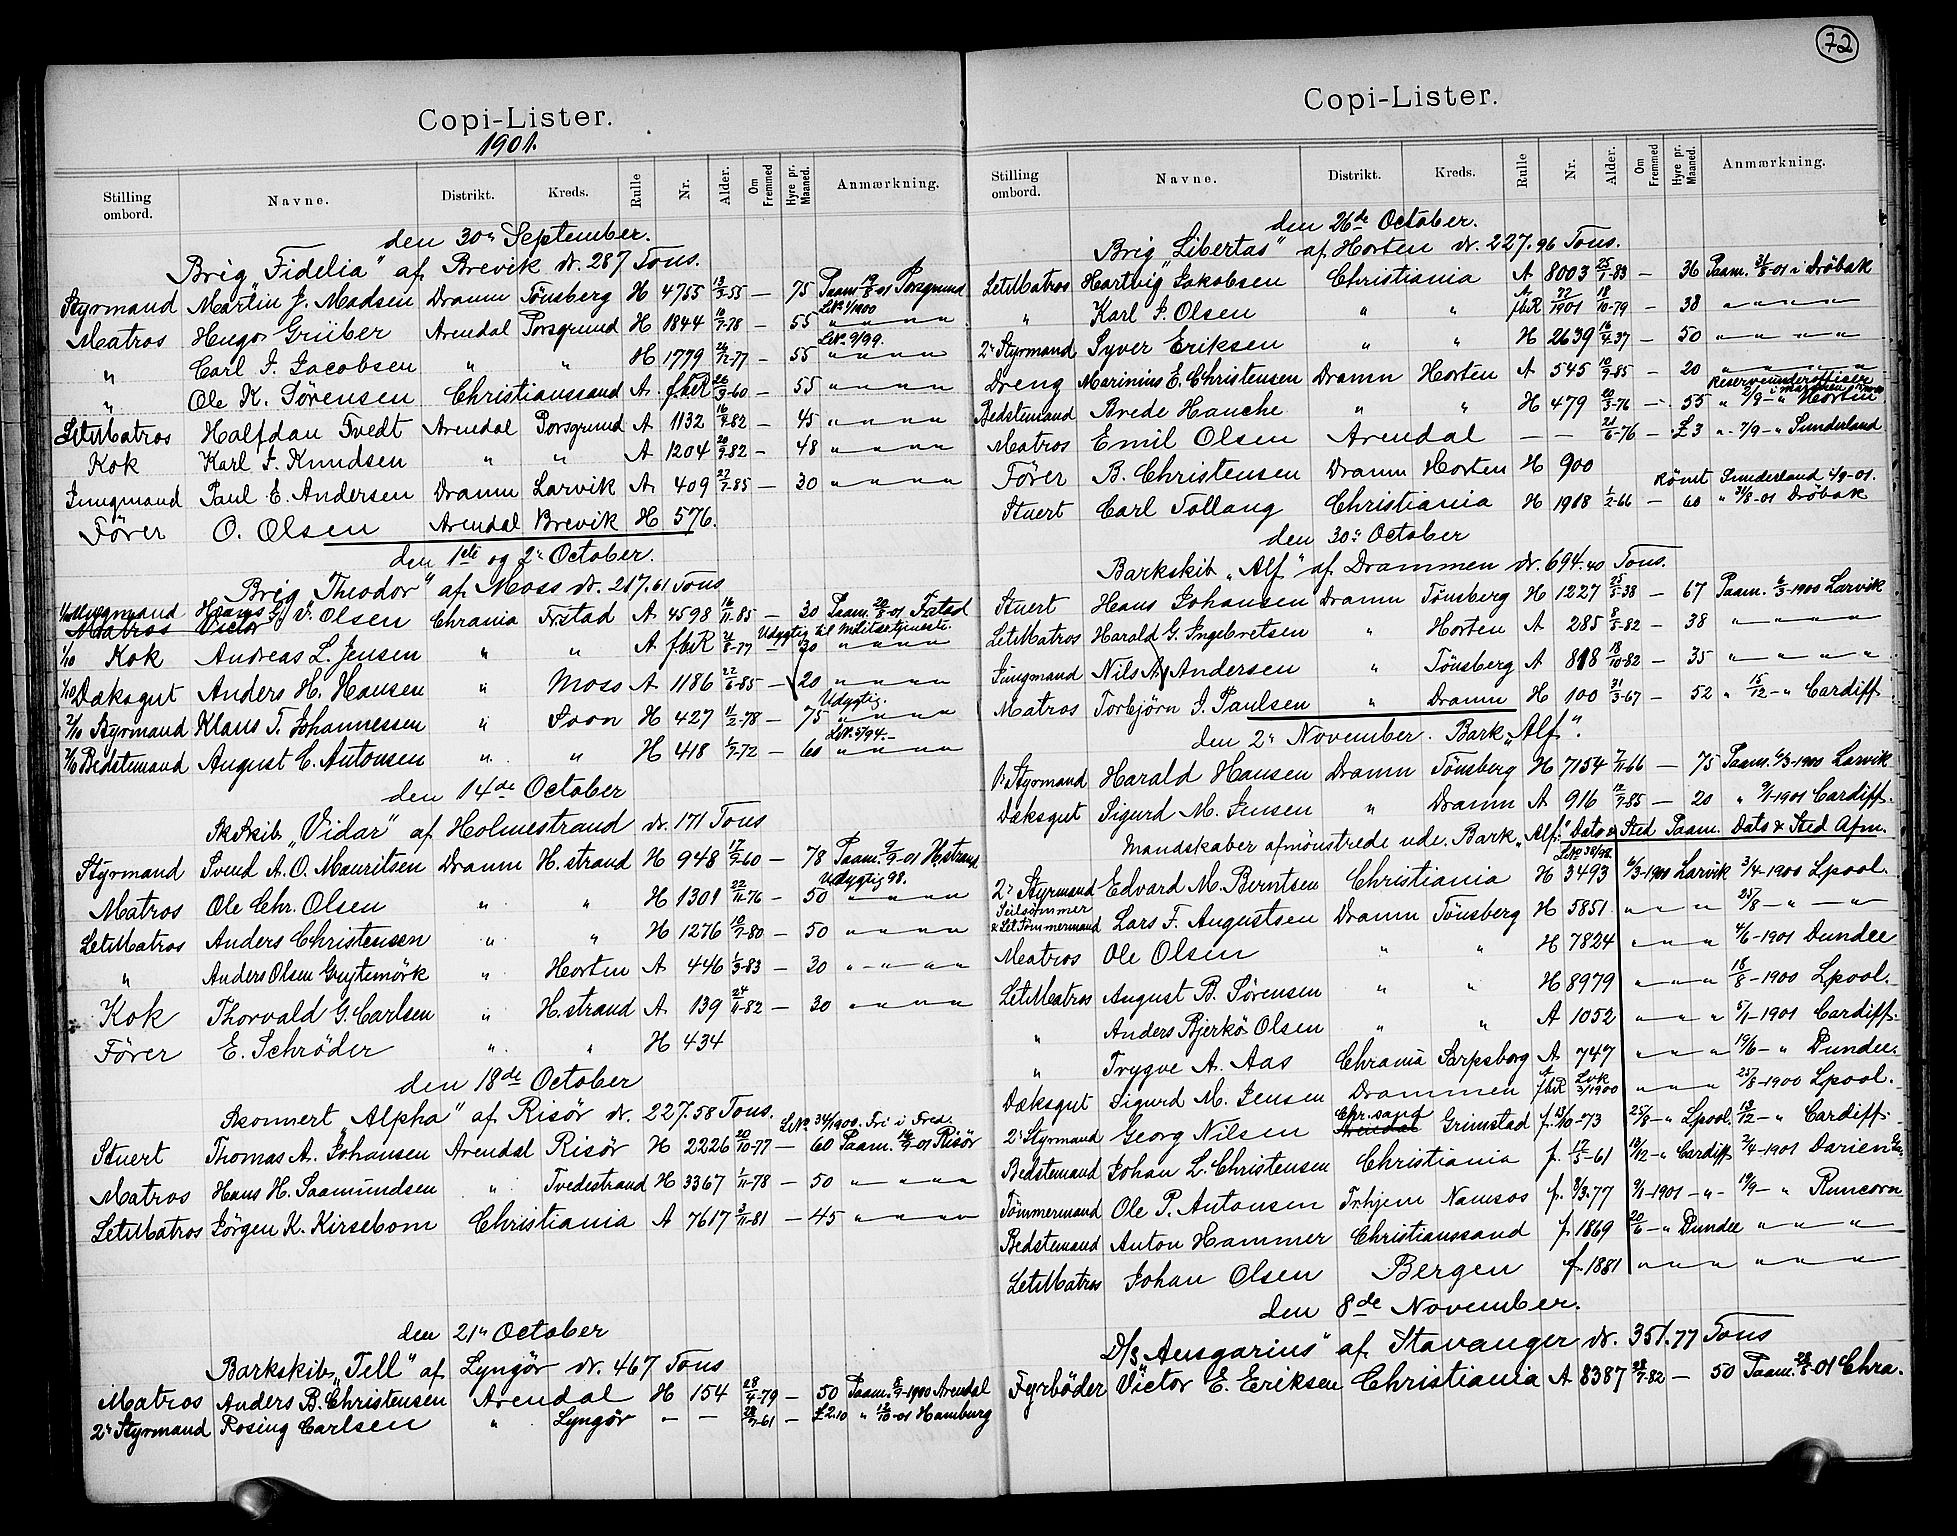 72
Copi-Lister.
1901.
Stilling ombord. Navne. Distrikt. Kreds. Rulle Nr. Alder. Om Fremmed Hyre pr. Maaned. Anmærkning.
den 30" September.
Brig "Fidelia" af Brevik dr. 287 Tons.
Styrmand Martin J. Madsen Dramn Tönsberg H 4755 13/3-55 — 75 Paam. 19/8-01 Porsgrund
Matros Hugo Grüber Arendal Porsgrund H 1844 16/7-78 — 55 LNo. 1/1900 " " " "
" Carl J. Jacobsen " " H 1779 26/12-77 — 55 LNo. 9/99. " " " "
" Ole K. Sörensen Christianssand A. fbR 26/3-60 — 55 " " " "
LetMatros Halfdan Tvedt Arendal Porsgrund A 1132 16/9-82 — 45 " " " "
Kok Karl J. Knudsen " " A 1204 20/9-82 — 48 " " " "
Jungmand Paul E. Andersen Dramn Larvik A. 409 27/7-85 — 30 " " " "
Förer O. Olsen Arendal Brevik H 576.
den 1ste og 2" October.
Brig "Theodor" af Moss dr. 217.61 Tons
Jungmand Hans J. V. Olsen Chrania Frstad A. 4598 16/11-85 — 30 Paam. 20/8-01 Frstad
Matros Victor
Udygtig til Militærtjeneste
1/10 Kok Andreas L. Jensen " " A fbR 4/8-77 30 " " " "
1/10 Dæksgut Anders H. Hansen " Moss A 1186 27/6-85 — 20 " " " "
2/10 Styrmand Klaus T. Johannessen " Soon H 427 11/2-78 — 75 Udygtig. " " " "
2/10 Bedstemand August C. Antonsen " " H 418 1/7-72 — 60 LNo. 5/94.— " " " "
den 14de October
SkSkib "Vidar" af Holmestrand dr. 171 Tons
Styrmand Svend A. O. Mauritsen Dramn H. strand H 948 17/9-60 — 78 Paam. 9/9-01 H.strand
Matros Ole Chr. Olsen " " H 1301 22/11-76 — 50 Udygtig 98. " " " "
LetMatros Anders Christensen " " H 1276 10/7-80 — 50 " " " "
" Anders Olsen Grytemörk " Horten A 446 1/3-83 — 30 " " " "
Kok Thorvald G. Carlsen " H. strand A. 139 24/11-82 — 30 " " " "
Förer E. Schröder " " H 434
den 18de October
Skonnert "Alpha" af Risör dr. 227.58 Tons.
LNo. 34/1900. Fri i Fred.
Stuert Thomas A. Johansen Arendal Risör H 2226 20/10-77 — 60 Paam. 16/9-01 Risör
Matros Hans H. Saamundsen " Tvedestrand H 3367 1/11-78 — 50 " " " "
LetMatros Jörgen K. Kirsebom Christiania A 7617 3/11-81 — 45 " " " "
den 21" October
Barkskib "Tell" af Lyngör dr. 467 Tons
Matros Anders B. Christensen Arendal H 154 28/4-79 — 50 Paam. 5/7-1900 Arendal
2" Styrmand Rosing Carlsen " Lyngör — — 28/7-61 — £2.10 " 12/10-01 Hamburg
Copi-Lister.
Stilling ombord. Navne. Distrikt. Kreds. Rulle Nr. Alder. Om Fremmed Hyre pr. Maaned. Anmærkning.
den 26de October.
Brig "Libertas" af Horten dr. 227.96 Tons.
LetMatros Hartvig Jakobsen Christiania A 8003 25/1-83 — 36 Paam. 31/8-01 i Dröbak
" Karl J. Olsen " " A fbR 72/1901 18/10-79 — 38 " " " "
2" Styrmand Syver Eriksen " " H 2639 16/4-37 — 50 " " " "
Dreng Marinius E. Christensen Dramn Horten A 545 10/9-85 — 20 " " " "
Reserveunderofficer i marinen
Bedstemand Brede Hauche " " H 479 20/3-76 — 55 " 2/9-" Horten
Matros Emil Olsen Arendal — — 21/6-76 — £3 " 7/9-" Sunderland
Förer B. Christensen Dramn Horten H 900
Römt Sunderland 4/9-01.
Stuert Carl Tollang Christiania H 1918 1/2-66 — 60 " 31/8-01 Dröbak
den 30" October
Barkskib "Alf" af Drammen dr. 694.40 Tons.
Stuert Hans Johansen Dramn Tönsberg H 1227 25/5-38 — 67 Paam. 6/3-1900 Larvik
LetMatros Harald G. Ingebretsen " Horten A 285 8/5-82 — 38 " " " "
Jungmand Nils A. Andersen " Tönsberg A 818 18/10-82 — 35 " " " "
Matros Torbjörn J. Paulsen " Dramn H 100 31/3-67 — 52 " 15/12-" Cardiff
den 2" November. Bark "Alf".
1" Styrmand Harald Hansen Dramn Tönsberg H 7154 7/11-66 — 75 Paam. 6/3-1900 Larvik
Dæksgut Sigurd M. Jensen " Dramn A 916 12/7-85 — 20 " 9/1-1901 Cardiff.
Mandskaber afmönstrede ude. Bark "Alf". Dato & Sted Paam. Dato & Sted Afm.
2" Styrmand Edvard M. Berntsen Christiania H LNo 38/98. 3493 6/3-1900 Larvik 3/4-1900 Lpool.
Seilsömmer & LetTömmermand Lars F. Augustsen Dramn Tönsberg H 5851 " " " 25/8-" — "
Matros Ole Olsen " " H 7824 " " " 4/6-1901 Dundee
LetMatros August B. Sörensen " " H 8979 " " " 18/8-1900 Lpool.
" Anders Bjerkö Olsen " " A 1052 " " " 5/1-1901 Cardiff.
" Trygve A. Aas Chrania Sarpsborg A 747 " " " 19/6-" Dundee.
Dæksgut Sigurd M. Jensen Drammen A fbR Lvk 3/1900 " " " 25/8-1900 Lpool.
2" Styrmand Georg Nilsen Arendal Chr.sand Grimstad f. 13/10-73 25/8-" Lpool. 13/12-" Cardiff.
Bedstemand Johan L. Christensen Christiania f. 17/5-61 19/12-" Cardiff 2/4-1901 Darien
Tömmermand Ole P. Antonsen Tr.hjem Namsos f. 8/3-77 9/1-1901 -"- 19/9-" Runcorn
Bedstemand Anton Hammer Christianssand f. 1869 20/6-" Dundee " " "
LetMatros Johan Olsen Bergen f. 1881 " " " " " "
den 8de November.
D/S "Ansgarius" af Stavanger dr. 351.77 Tons
Fyrböder Victor E. Eriksen Christiania A 8387 28/7-82 — 50 Paam. 28/8-01 Chra.